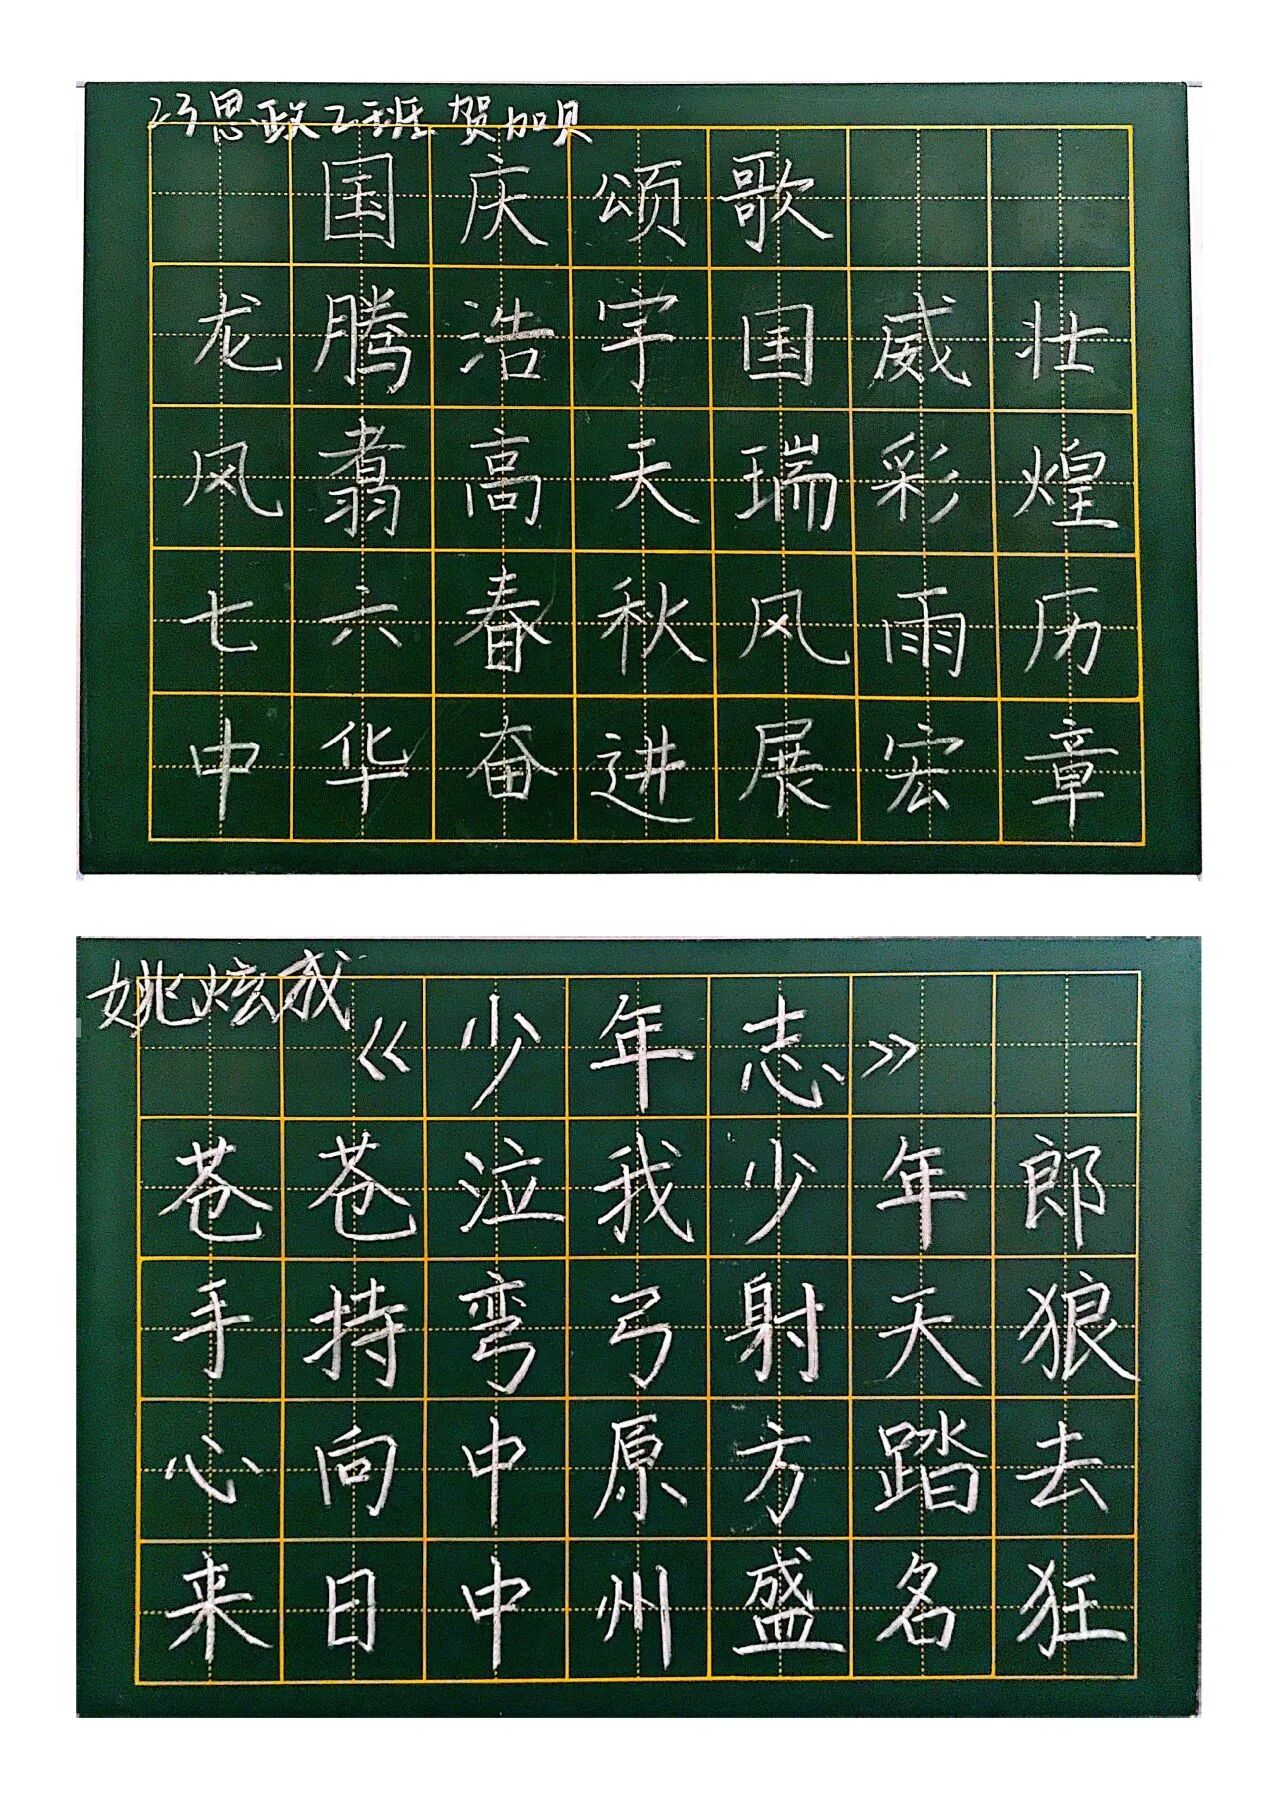 23思政2班 贺加贝
国庆颂歌
龙腾浩宇国威壮
风翥高天瑞彩煌
七六春秋风雨历
中华奋进展宏章
姚炫成
《少年志》
苍苍泣我少年郎
手持弯弓射天狼
心向中原方踏去
来日中州盛名狂